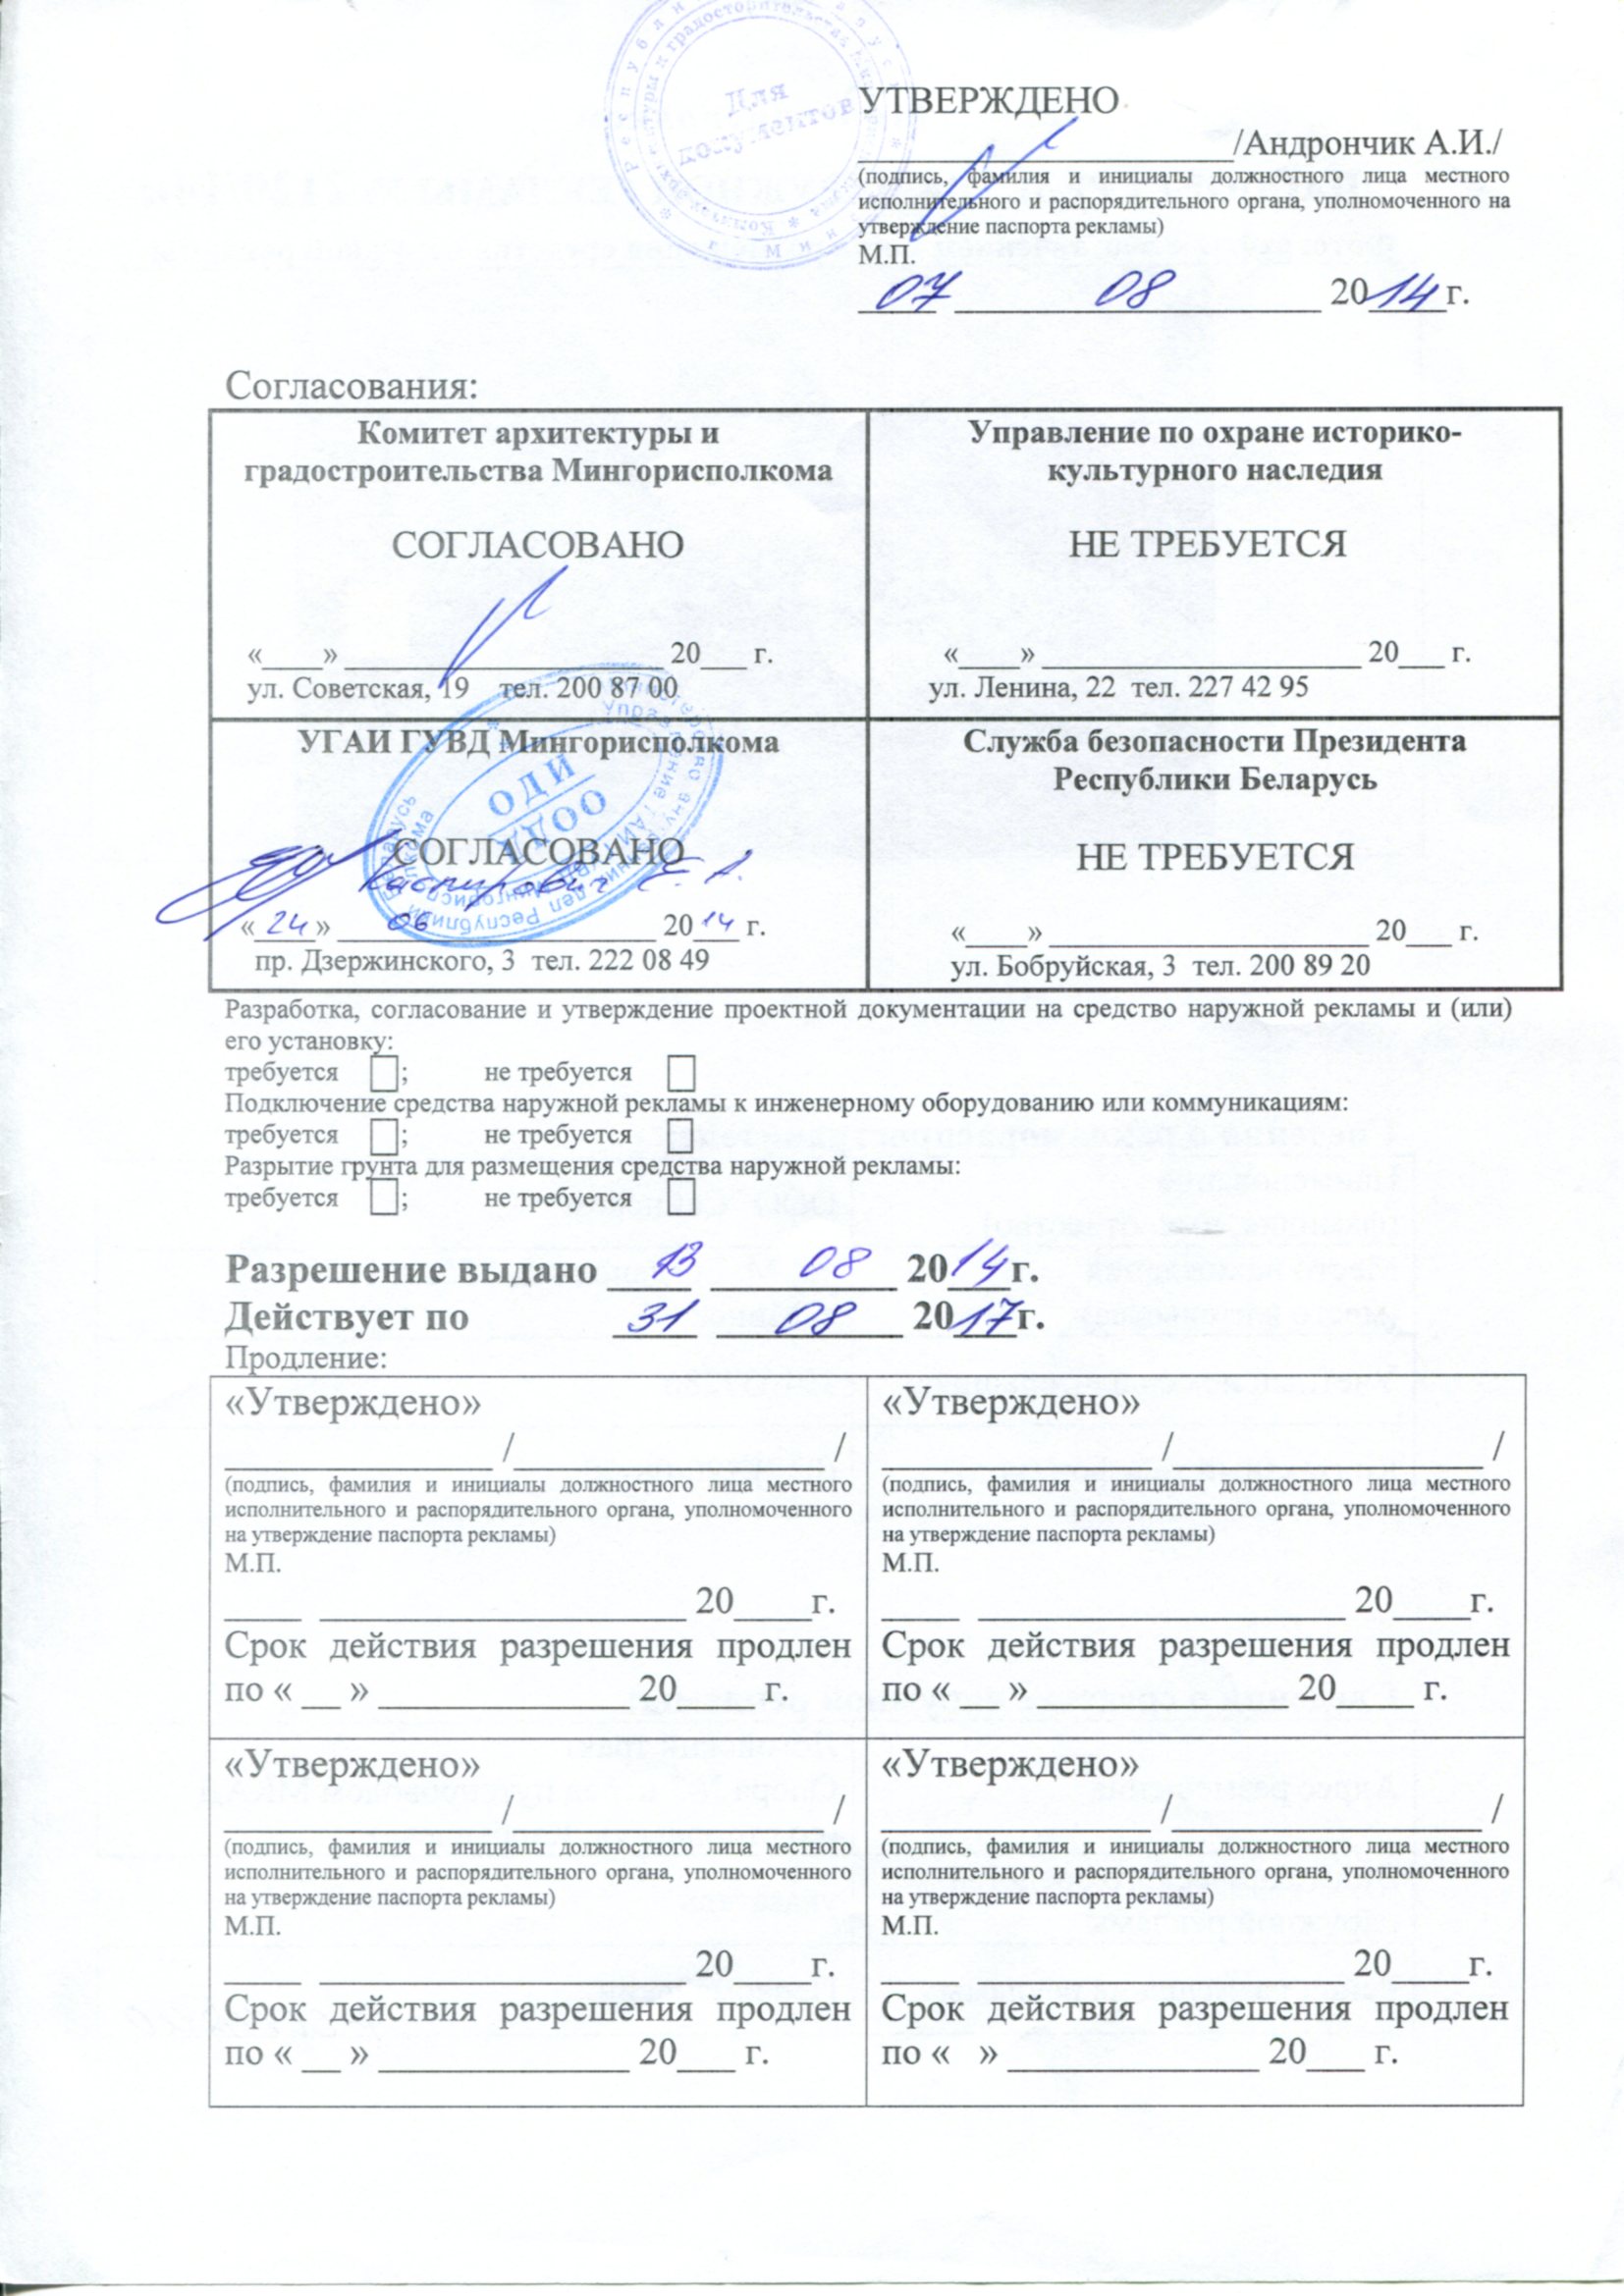 Для
документов
УТВЕРЖДЕНО
____________________/Андрончик А.И./
(подпись, фамилия и инициалы должностного лица местного
исполнительного и распорядительного органа, уполномоченного на
утверждение паспорта рекламы)
М.П.
07 08 2014г.
Согласования:
Комитет архитектуры и
градостроительства Мингорисполкома
СОГЛАСОВАНО
«____» _____________________ 20___ г.
ул. Советская, 19 тел. 200 87 00
Управление по охране историко-
культурного наследия
НЕ ТРЕБУЕТСЯ
«____» _____________________ 20___ г.
ул. Ленина, 22 тел. 227 42 95
УГАИ ГУВД Мингорисполкома
ОДИ
ООДД
СОГЛАСОВАНО
«24» 06 2014 г.
пр. Дзержинского, 3 тел. 222 08 49
Служба безопасности Президента
Республики Беларусь
НЕ ТРЕБУЕТСЯ
«____» _____________________ 20___ г.
ул. Бобруйская, 3 тел. 200 89 20
Разработка, согласование и утверждение проектной документации на средство наружной рекламы и (или)
его установку:
требуется ; не требуется
Подключение средства наружной рекламы к инженерному оборудованию или коммуникациям:
требуется ; не требуется
Разрытие грунта для размещения средства наружной рекламы:
требуется ; не требуется
Разрешение выдано 13 08 2014г.
Действует по 31 08 2017г.
Продление:
«Утверждено»
______________ /________________ /
(подпись, фамилия и инициалы должностного лица местного
исполнительного и распорядительного органа, уполномоченного
на утверждение паспорта рекламы)
М.П.
____ ___________________ 20____г.
Срок действия разрешения продлен
по « __ » _____________ 20____ г.
«Утверждено»
______________ /________________ /
(подпись, фамилия и инициалы должностного лица местного
исполнительного и распорядительного органа, уполномоченного
на утверждение паспорта рекламы)
М.П.
____ ___________________ 20____г.
Срок действия разрешения продлен
по « __ » _____________ 20____ г.
«Утверждено»
______________ /________________ /
(подпись, фамилия и инициалы должностного лица местного
исполнительного и распорядительного органа, уполномоченного
на утверждение паспорта рекламы)
М.П.
____ ___________________ 20____г.
Срок действия разрешения продлен
по « __ » _____________ 20___ г.
«Утверждено»
______________ /________________ /
(подпись, фамилия и инициалы должностного лица местного
исполнительного и распорядительного органа, уполномоченного
на утверждение паспорта рекламы)
М.П.
____ ___________________ 20____г.
Срок действия разрешения продлен
по « » _____________ 20___ г.